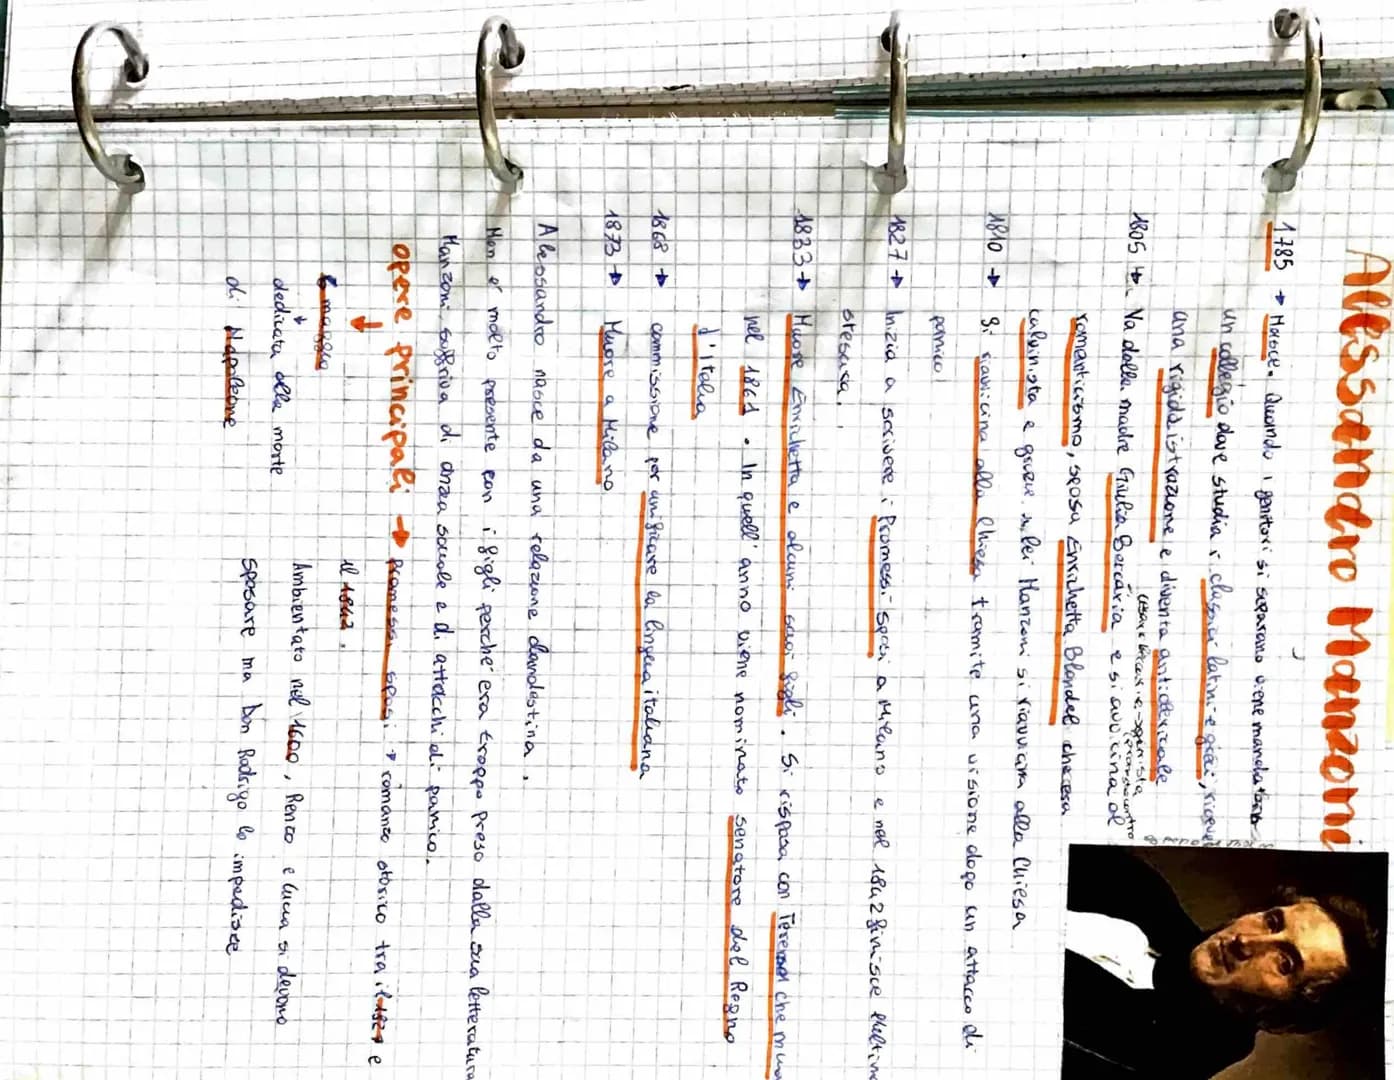 Alessandro Manzoni
1785 → Nasce. Quando i genitori si separano viene mandato in
un collegio dove studia i classici latini e greci, riceve
una rigida istruzione e diventa anticlericale
1805 → Va dalla madre Giulia Beccaria e si avvicina al
romanticismo, sposa Enrichetta Blondel che era
calvinista e grazie a lei Manzoni si riavvicina alla Chiesa
1810 → Si riavvicina alla Chiesa tramite una visione dopo un attacco di
panico
1827 → Inizia a scrivere i Promessi sposi a Milano e nel 1842 finisce l'ultima
stesura.
1833 → Muore Enrichetta e alcuni suoi figli. Si risposa con Teresa che muore
nel 1861. In quell'anno viene nominato senatore del Regno
d'Italia
1868 → commissione per unificare la lingua italiana
1873 → Muore a Milano
Alessandro nasce da una relazione clandestina.
Non è molto presente con i figli perché era troppo preso dalla sua letteratura
Manzoni soffriva di ansia sociale e di attacchi di panico.
opere principali → promessi sposi → romanzo storico tra il 1827 e
il 1842.
5 maggio
Ambientato nel 1600, Renzo e Lucia si devono
dedicata alla morte
sposare ma Don Rodrigo lo impedisce
di Napoleone